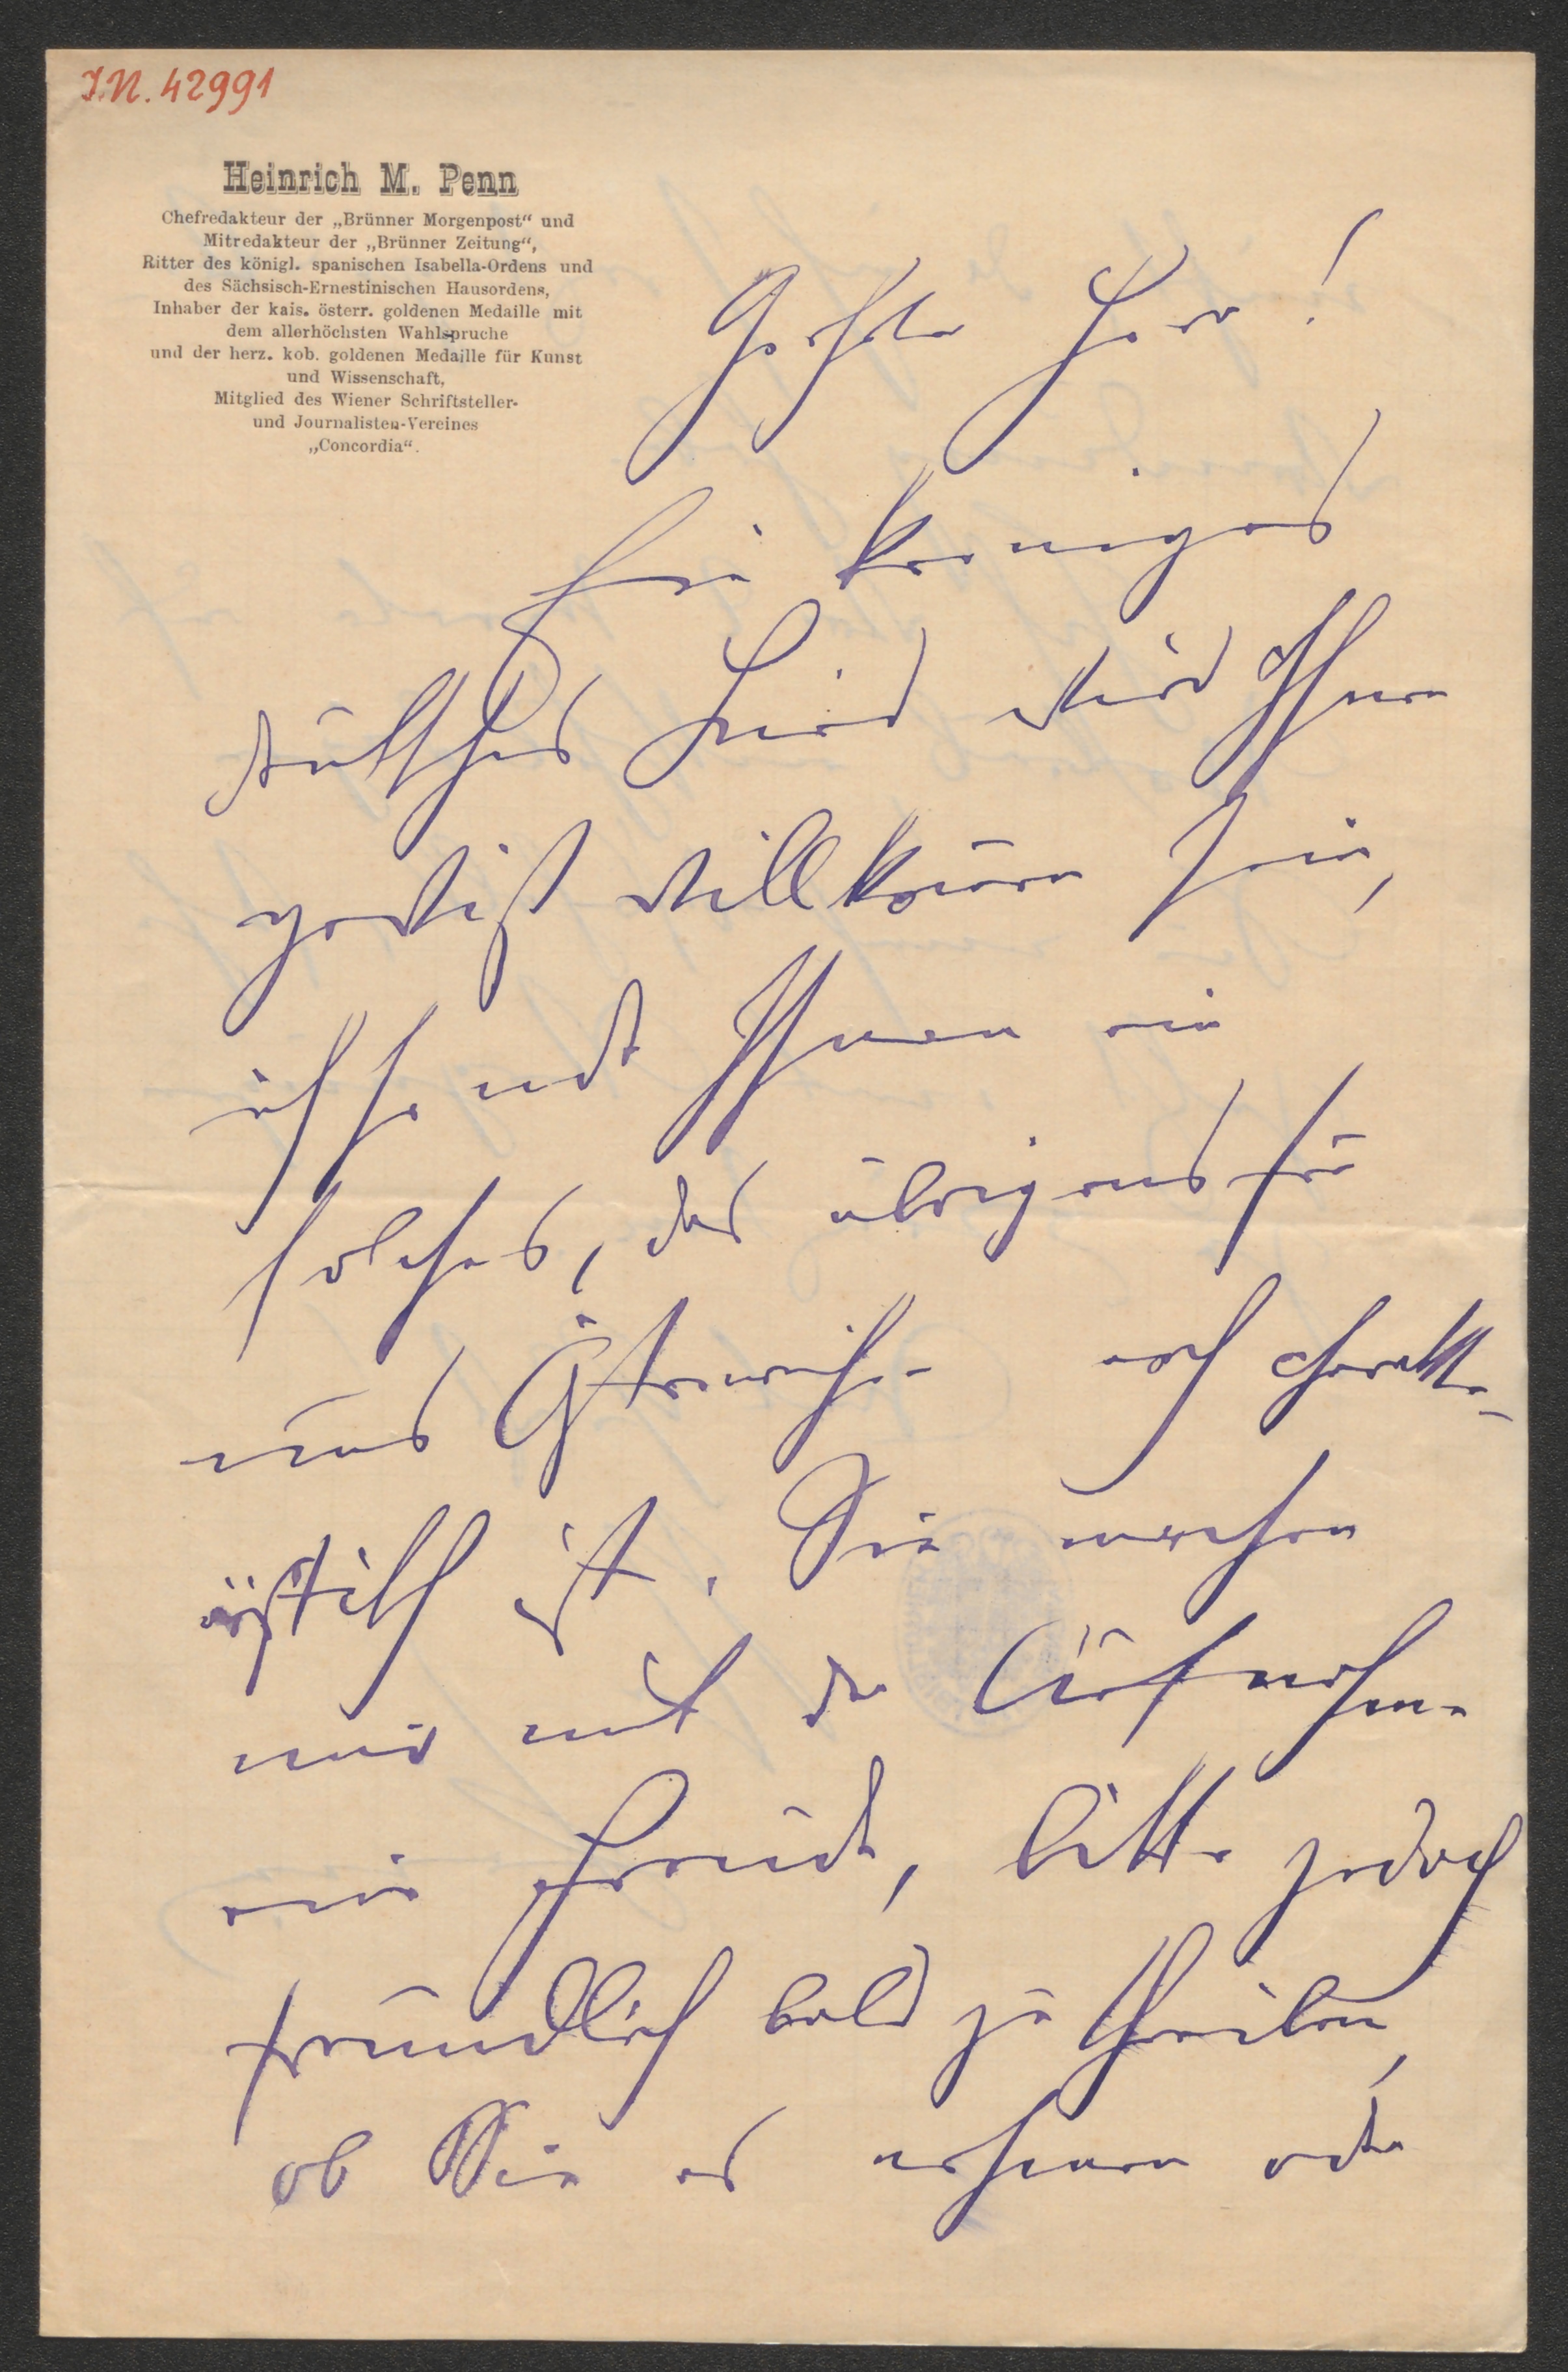 I.N. 42991
Heinrich M. Penn
Chefredakteur der „Brünner Morgenpost“ und
Mitredakteur der „Brünner Zeitung“,
Ritter des königl. spanischen Isabella-Ordens und
des Sächsisch-Ernestinischen Hausordens,
Inhaber der kais. österr. goldenen Medaille mit
dem allerhöchsten Wahlspruche
und der herz. kob. goldenen Medaille für Kunst
und Wissenschaft,
Mitglied des Wiener Schriftsteller-
und Journalisten-Vereines
„Concordia“.
Geehrter Herr!
Ein kerniges
deutsches Lied wird Ihnen
gewiß willkomen sein,
ich sende Ihnen ein
solches, das übrigens für
uns Österreicher auch charakte-
ristisch ist. Sie machen
mir mit der Aufnahme
eine Freude, bitte jedoch
freundlich bald zu theilen,
ob Sie es nehmen oder